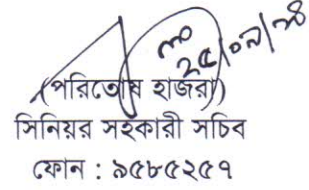 ২৫/০৯/২৪
(পরিতোষ হাজরা)
সিনিয়র সহকারী সচিব
ফোন : ৯৫৮৫২৫৭